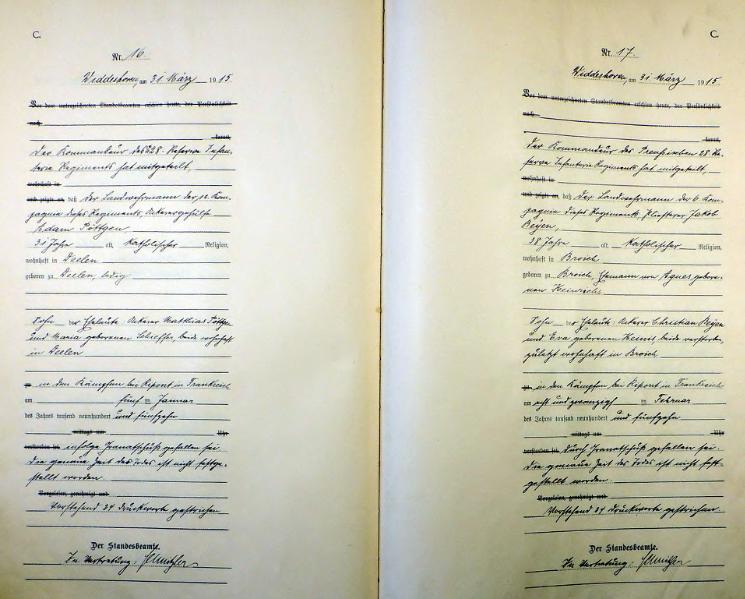 C.
Nr. 16.
Widdeshoven, am 31 März 1915
Vor dem unterzeichneten Standesbeamten erschien heute, der Persönlichkeit
nach,
kannt,
Der Kommandeur des 228. Reserve Infan-
terie Regiments hat mitgeteilt,
wohnhaft in
und zeigte an, daß der Landwehrmann der 12. Kom-
pagnie dieses Regiments, Ackerergehülfe
Adam Pöttgen
31 Jahre alt, katholischer Religion,
wohnhaft in Deelen
geboren zu Deelen, ledig
Sohn der Eheleute Ackerer Matthias Pöttgen
und Maria geborenen beide wohnhaft
in Deelen
in den Kämpfen bei Ripont in Frankreich
am fünf Januar
des Jahres tausend neunhundert und fünfzehn
mittags um Uhr
verstorben sei infolge Granatschuß gefallen sei
Die genaue Zeit des Todes ist nicht festge-
stellt worden
Vorgelesen, genehmigt und
Vorstehend 34 Druckworte gestrichen
Der Standesbeamte.
In Vertretung:
C.
Nr. 17.
Widdeshoven, am 31 März 1915
Vor dem unterzeichneten Standesbeamten erschien heute, der Persönlichkeit
nach,
kannt,
Der Kommandeur des Preußischen 28. Re-
serve Infanterie Regiments hat mitgeteilt,
wohnhaft in
und zeigte an, daß Der Landwehrmann der 6 Kom-
pagnie dieses Regiments, Jakob
38 Jahre alt, katholischer Religion,
wohnhaft in Broich
geboren zu Broich, Ehemann von Agnes gebore-
nen Heinrichs
Sohn der Eheleute Ackerer Christian
und Eva geborenen beide verstorben
zuletzt wohnhaft in Broich
in den Kämpfen bei Ripont in Frankreich
am acht und zwanzigsten Februar
des Jahres tausend neunhundert und fünfzehn
mittags um Uhr
verstorben sei durch Granatschuß gefallen sei.
Die genaue Zeit des Todes ist nicht fest-
gestellt worden
Vorgelesen, genehmigt und
Vorstehend 34 Druckworte gestrichen.
Der Standesbeamte.
In Vertretung: